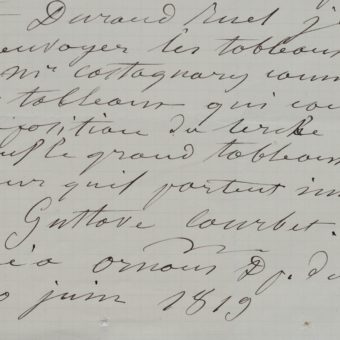 Durand Ruel j
envoyer les tableaux
mr Castagnary comm
tableaux qui
position du cercle
le grand tableau
qu'il partent
Gustave Courbet.
né a Ornans Dp. du
juin 1819